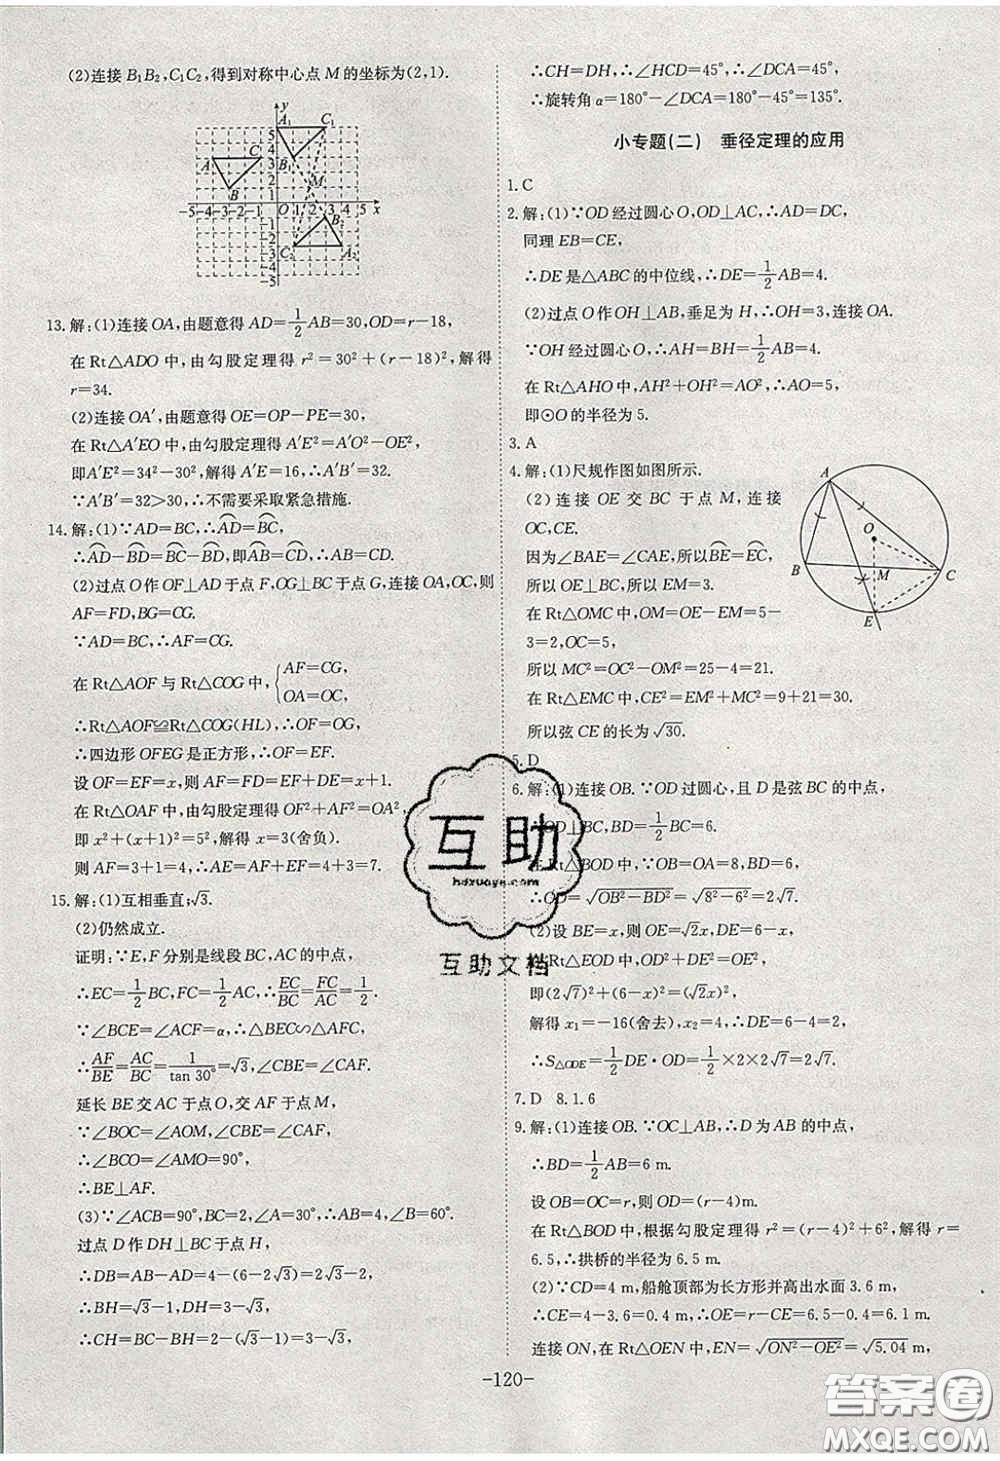 (2)连接 B₁B₂,C₁C₂,得到对称中心点 M 的坐标为(2,1).
y
A₁ C₁
5
4
A C 3 B₁
2 M
B 1
-5-4-3-2-1 O 1 2 3 4 5 x
-1 B₂
-2
C₂ -3 A₂
-4
-5
13. 解:(1)连接 OA,由题意得 AD=1/2AB=30,OD=r-18,
在 Rt△ADO 中,由勾股定理得 r²=30²+(r-18)²,解得
r=34.
(2)连接 OA′,由题意得 OE=OP-PE=30,
在 Rt△A′EO 中,由勾股定理得 A′E²=A′O²-OE²,
即A′E²=34²-30²,解得 A′E=16,∴A′B′=32.
∵A′B′=32>30,∴不需要采取紧急措施.
14. 解:(1)∵AD=BC,∴⌒AD=⌒BC,
∴⌒AD-⌒BD=⌒BC-⌒BD,即⌒AB=⌒CD,∴AB=CD.
(2)过点 O 作 OF⊥AD 于点 F,OG⊥BC 于点 G,连接 OA,OC,则
AF=FD,BG=CG.
∵AD=BC,∴AF=CG.
在 Rt△AOF 与 Rt△COG 中,{AF=CG,
OA=OC,
∴Rt△AOF≌Rt△COG(HL),∴OF=OG,
∴四边形 OFEG 是正方形,∴OF=EF.
设 OF=EF=x,则 AF=FD=EF+DE=x+1.
在 Rt△OAF 中,由勾股定理得 OF²+AF²=OA²,
即 x²+(x+1)²=5²,解得 x=3(舍负).
则 AF=3+1=4,∴AE=AF+EF=4+3=7.
15. 解:(1)互相垂直;√3.
(2)仍然成立.
证明:∵E,F 分别是线段 BC,AC 的中点,
∴EC=1/2BC,FC=1/2AC,∴EC/BC=FC/AC=1/2.
∵∠BCE=∠ACF=α,∴△BEC∽△AFC,
∴AF/BE=AC/BC=1/tan 30°=√3,∠CBE=∠CAF.
延长 BE 交 AC 于点 O,交 AF 于点 M,
∵∠BOC=∠AOM,∠CBE=∠CAF,
∴∠BCO=∠AMO=90°,
∴BE⊥AF.
(3)∵∠ACB=90°,BC=2,∠A=30°,∴AB=4,∠B=60°.
过点 D 作 DH⊥BC 于点 H,
∴DB=AB-AD=4-(6-2√3)=2√3-2,
∴BH=√3-1,DH=3-√3,
∴CH=BC-BH=2-(√3-1)=3-√3,
∴CH=DH,∴∠HCD=45°,∴∠DCA=45°,
∴旋转角 α=180°-∠DCA=180°-45°=135°.
小专题(二) 垂径定理的应用
1. C
2. 解:(1)∵OD 经过圆心 O,OD⊥AC,∴AD=DC,
同理 EB=CE,
∴DE 是△ABC 的中位线,∴DE=1/2AB=4.
(2)过点 O 作 OH⊥AB,垂足为 H,∴OH=3,连接 OA.
∵OH 经过圆心 O,∴AH=BH=1/2AB=4.
在 Rt△AHO 中,AH²+OH²=AO²,∴AO=5,
即⊙O 的半径为 5.
3. A
4. 解:(1)尺规作图如图所示.
(2)连接 OE 交 BC 于点 M,连接
OC,CE.
因为∠BAE=∠CAE,所以⌒BE=⌒EC,
所以 OE⊥BC,所以 EM=3.
在 Rt△OMC 中,OM=OE-EM=5-
3=2,OC=5,
所以 MC²=OC²-OM²=25-4=21.
在 Rt△EMC 中,CE²=EM²+MC²=9+21=30.
所以弦 CE 的长为√30.
A
O
B M C
E
5. D
6. 解:(1)连接 OB.∵OD 过圆心,且 D 是弦 BC 的中点,
∴OD⊥BC,BD=1/2BC=6.
在 Rt△BOD 中,∵OB=OA=8,BD=6,
∴OD=√(OB²-BD²)=√(8²-6²)=2√7.
(2)设 BE=x,则 OE=√2x,DE=6-x,
在 Rt△EOD 中,OD²+DE²=OE²,
即(2√7)²+(6-x)²=(√2x)²,
解得 x₁=-16(舍去),x₂=4,∴DE=6-4=2,
∴S△ODE=1/2DE·OD=1/2×2×2√7=2√7.
7. D 8. 1.6
9. 解:(1)连接 OB.∵OC⊥AB,∴D 为 AB 的中点,
∴BD=1/2AB=6 m.
设 OB=OC=r,则 OD=(r-4)m.
在 Rt△BOD 中,根据勾股定理得 r²=(r-4)²+6²,解得 r=
6.5,∴拱桥的半径为 6.5 m.
(2)∵CD=4 m,船舱顶部为长方形并高出水面 3.6 m,
∴CE=4-3.6=0.4 m,∴OE=r-CE=6.5-0.4=6.1 m,
连接 ON,在 Rt△OEN 中,EN=√(ON²-OE²)=√5.04 m,
-120-
互助
hdzuoye.com
互助文档
答案卷
MXQE.COM